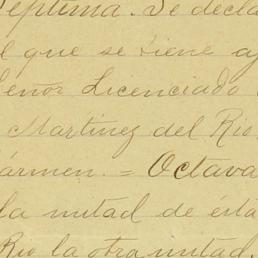 Septima. Se decla
el que se viene a
Señor Licenciado
Martinez del Rio
Cármen. = Octava
la mitad de ésta
Rio la otra mitad.